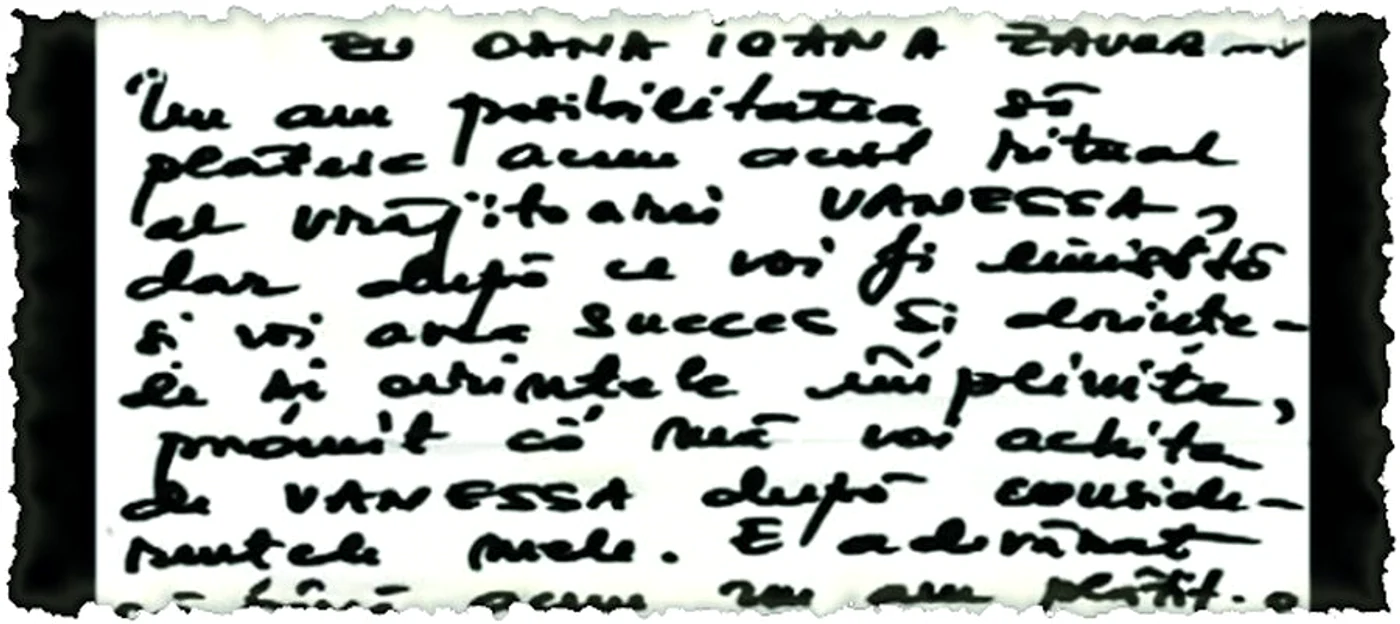 EU OANA IOANA ZAVERA
Nu am posibilitatea să
platesc acum acest ritual
al vrăjitoarei VANESSA,
dar după ce voi fi liniștită
si voi avea succes si dorinte-
le si dorintele împlinite,
promit că mă voi achita
de VANESSA după conside-
rentele mele. E adevărat
că până acum nu am plătit.